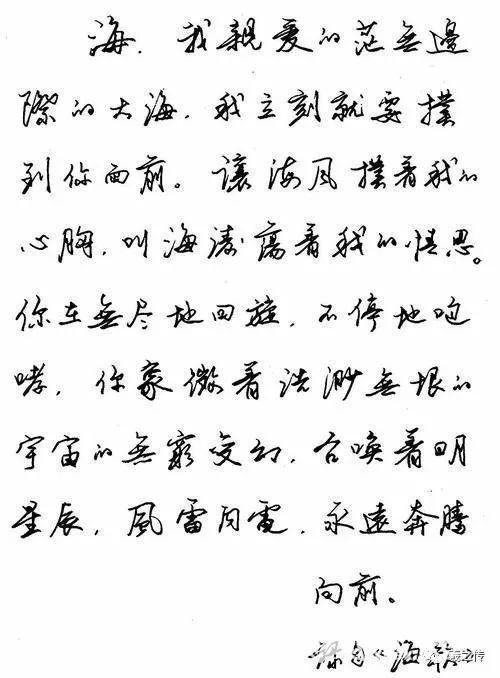 海,我親爱的茫無邊
際的大海,我立刻就要撲
到你面前。讓海风撲着我的
心胸,叫海濤蕩着我的情思。
你在無尽地回旋,不停地咆
哮,你象徵着浩渺無垠的
宇宙的無窮变幻,召唤着日月
星辰,風雷闪電,永遠奔騰
向前。
自《海歌